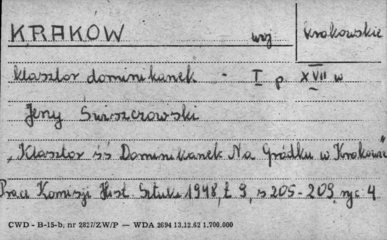 KRAKÓW woj krakowskie
klasztor dominikanek - I p. XVII w
Jerzy Świszczowski
„Klasztor śś Dominikanek Na Gródku w Krakowie"
Prace Komisji Hist. Sztuki 1948, t. 9, s 205-209, ryc. 4
CWD - B-15-b, nr 2827/ZW/P — WDA 2694 13.12.62 1.700.000